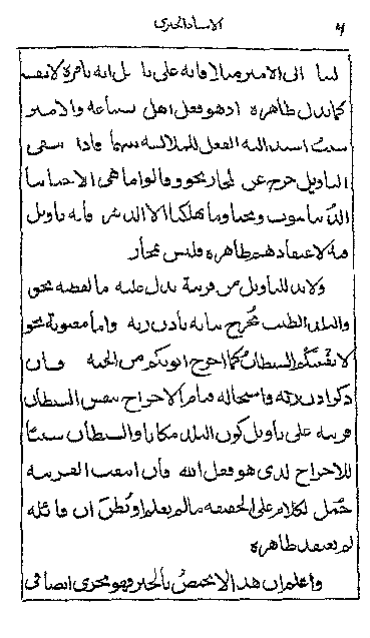 الاسناد الخبري ٧
لسا الى الامير مثلا فانه على تأ يل انه يأمره لا نفسه
كما يدل ظاهره اذ هو فعل اهل صناعة والامير
سبب اسند اليه الفعل للملابسة بينهما فاذا انتفى
التاويل خرج عن المجاز نحو وقالوا ما هي الا حياتنا
الدنيا نموت ونحيا وما يهلكنا الا الدهر فانه بلا تأويل
فيه لاعتقادهم ظاهره فليس بمجاز
ولابد للتاويل من قرينة تدل عليه ما لفظية نحو
والبلد الطيب يخرج نباته باذن ربه واما معنوية نحو
لا يفتننكم الشيطان كما اخرج ابويكم من الجنة فان
ذكر اذن ربه واستحالة قيام الاخراج بنفس الشيطان
قرينة على تاويل كون البلد مكانا والشيطان سببا
للاخراج الذي هو فعل الله فان انتفت القرينة
حمل الكلام على الحقيقة ما لم يعلم او يظن ان قائله
لم يعتقد ظاهره
واعلم ان هذا لا يختص بالخبر فهو يجري ايضا في